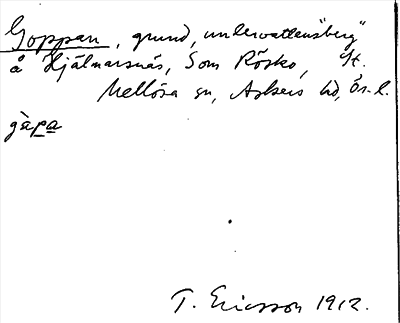 Goppan, grund, undervattens"berg"
å Hjälmarsnäs, Som Rösko, St.
Mellösa sn, Askers hd, Ör. l.
gàpa
T. Ericsson 1912.